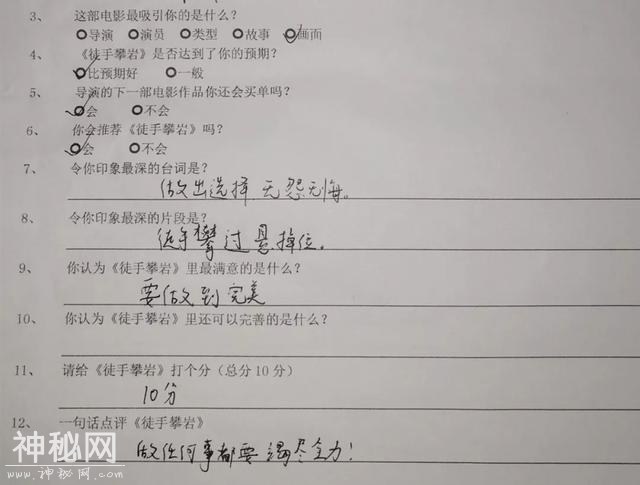 3、 这部电影最吸引你的是什么？
○导演 ○演员 ○类型 ○故事 ○画面
4、 《徒手攀岩》是否达到了你的预期？
○比预期好 ○一般
5、 导演的下一部电影作品你还会买单吗？
○会 ○不会
6、 你会推荐《徒手攀岩》吗？
○会 ○不会
7、 令你印象最深的台词是？
做出选择 无怨无悔。
8、 令你印象最深的片段是？
徒手攀过悬掉位。
9、 你认为《徒手攀岩》里最满意的是什么？
要做到完美
10、 你认为《徒手攀岩》里还可以完善的是什么？
11、 请给《徒手攀岩》打个分（总分10分）
10分
12、 一句话点评《徒手攀岩》
做任何事都要竭尽全力！
神秘网
www.神秘网.com